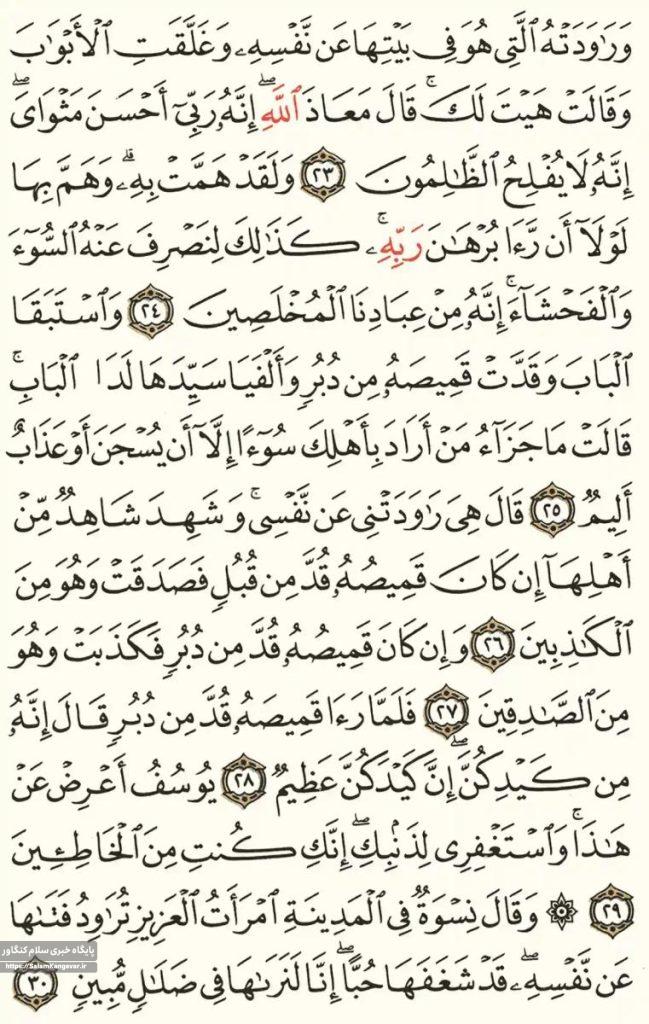 وَرَٰوَدَتْهُ ٱلَّتِى هُوَ فِى بَيْتِهَا عَن نَّفْسِهِۦ وَغَلَّقَتِ ٱلْأَبْوَٰبَ
وَقَالَتْ هَيْتَ لَكَ ۚ قَالَ مَعَاذَ ٱللَّهِ ۖ إِنَّهُۥ رَبِّىٓ أَحْسَنَ مَثْوَاىَ ۖ
إِنَّهُۥ لَا يُفْلِحُ ٱلظَّٰلِمُونَ ٢٣ وَلَقَدْ هَمَّتْ بِهِۦ ۖ وَهَمَّ بِهَا
لَوْلَآ أَن رَّءَا بُرْهَٰنَ رَبِّهِۦ ۚ كَذَٰلِكَ لِنَصْرِفَ عَنْهُ ٱلسُّوٓءَ
وَٱلْفَحْشَآءَ ۚ إِنَّهُۥ مِنْ عِبَادِنَا ٱلْمُخْلَصِينَ ٢٤ وَٱسْتَبَقَا
ٱلْبَابَ وَقَدَّتْ قَمِيصَهُۥ مِن دُبُرٍ وَأَلْفَيَا سَيِّدَهَا لَدَا ٱلْبَابِ ۚ
قَالَتْ مَا جَزَآءُ مَنْ أَرَادَ بِأَهْلِكَ سُوٓءًا إِلَّآ أَن يُسْجَنَ أَوْ عَذَابٌ
أَلِيمٌ ٢٥ قَالَ هِىَ رَٰوَدَتْنِى عَن نَّفْسِى ۚ وَشَهِدَ شَاهِدٌ مِّنْ
أَهْلِهَآ إِن كَانَ قَمِيصُهُۥ قُدَّ مِن قُبُلٍ فَصَدَقَتْ وَهُوَ مِنَ
ٱلْكَٰذِبِينَ ٢٦ وَإِن كَانَ قَمِيصُهُۥ قُدَّ مِن دُبُرٍ فَكَذَبَتْ وَهُوَ
مِنَ ٱلصَّٰدِقِينَ ٢٧ فَلَمَّا رَءَا قَمِيصَهُۥ قُدَّ مِن دُبُرٍ قَالَ إِنَّهُۥ
مِن كَيْدِكُنَّ ۖ إِنَّ كَيْدَكُنَّ عَظِيمٌ ٢٨ يُوسُفُ أَعْرِضْ عَنْ
هَٰذَا ۚ وَٱسْتَغْفِرِى لِذَنۢبِكِ ۖ إِنَّكِ كُنتِ مِنَ ٱلْخَاطِـِٔينَ
٢٩ ۞ وَقَالَ نِسْوَةٌ فِى ٱلْمَدِينَةِ ٱمْرَأَتُ ٱلْعَزِيزِ تُرَٰوِدُ فَتَىٰهَا
عَن نَّفْسِهِۦ ۖ قَدْ شَغَفَهَا حُبًّا ۖ إِنَّا لَنَرَىٰهَا فِى ضَلَٰلٍ مُّبِينٍ ٣٠
پایگاه خبری سلام کنگاور
https://SalamKangavar.ir